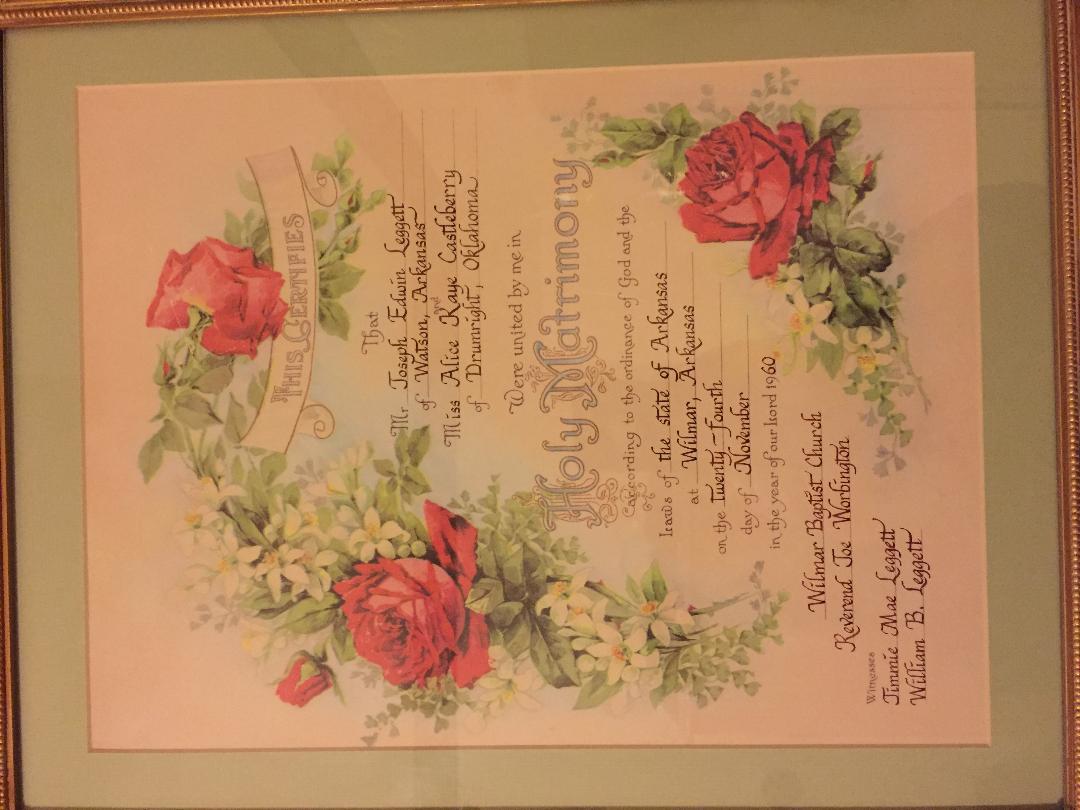 THIS CERTIFIES
That
Mr. Joseph Edwin Leggett
of Watson, Arkansas
and
Miss Alice Kaye Castleberry
of Drumright, Oklahoma
Were united by me in
Holy Matrimony
according to the ordinance of God and the
Laws of the state of Arkansas
at Wilmar, Arkansas
on the Twenty-Fourth
day of November
in the year of our Lord 1960
Wilmar Baptist Church
Reverend Joe Worbington
Witnesses
Jimmie Mae Leggett
William B. Leggett